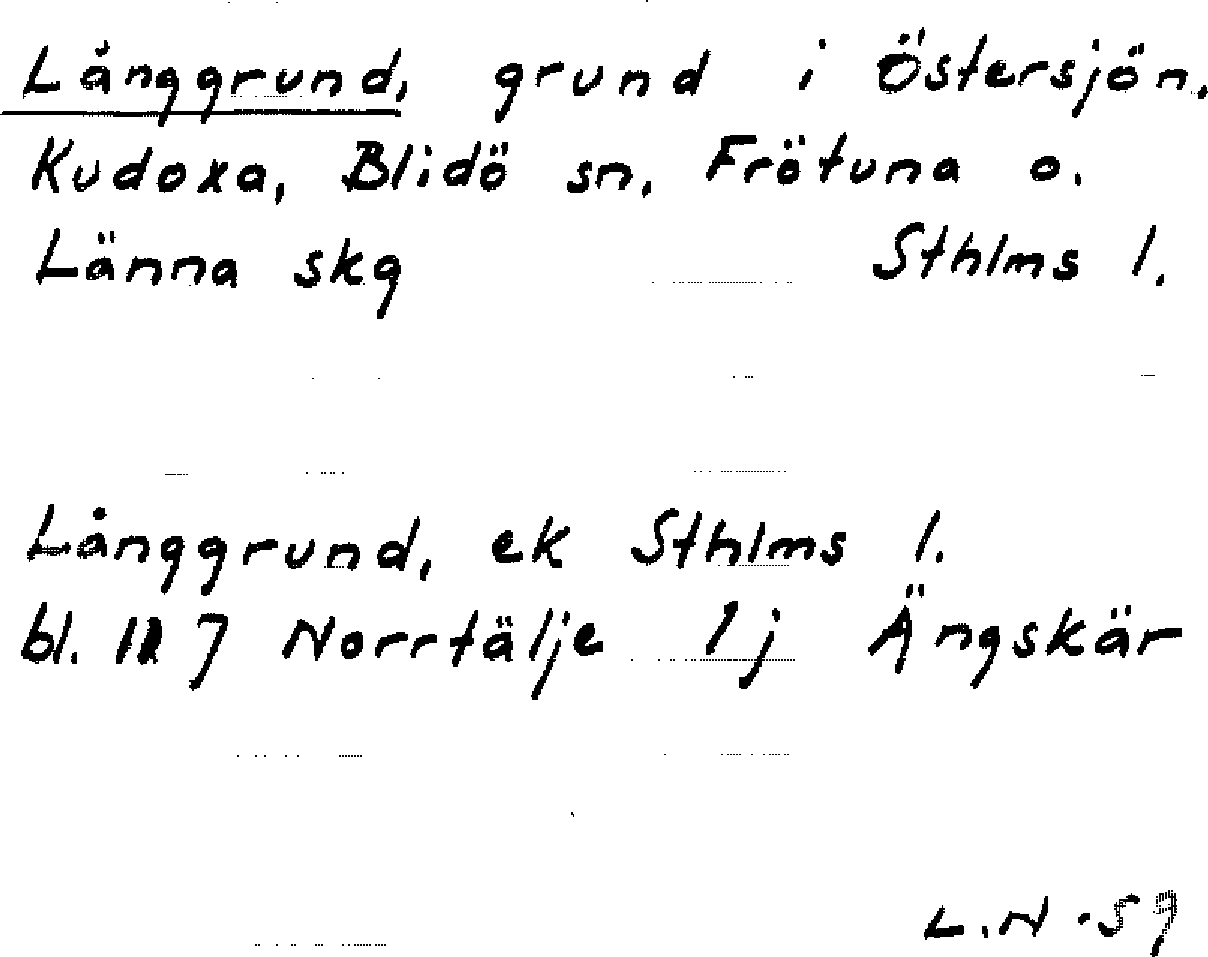 Långgrund, grund i Östersjön.
Kudoxa, Blidö sn, Frötuna o.
Länna skg Sthlms l.
Långgrund, ek Sthlms l.
bl. 7 Norrtälje Ij Ängskär
L.N -59